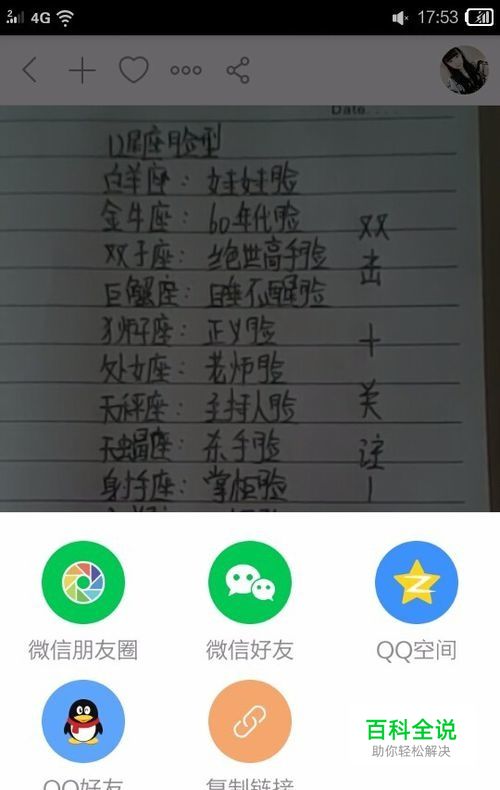 2 4G 17:53
Date
12星座脸型
白羊座：娃娃脸
金牛座：60年代脸
双子座：绝世高手脸
巨蟹座：睡不醒脸
狮子座：正义脸
处女座：老师脸
天秤座：主持人脸
天蝎座：杀手脸
射手座：掌柜脸
双
击
十
关
注
微信朋友圈
微信好友
QQ空间
QQ好友
复制链接
百科全说
助你轻松解决